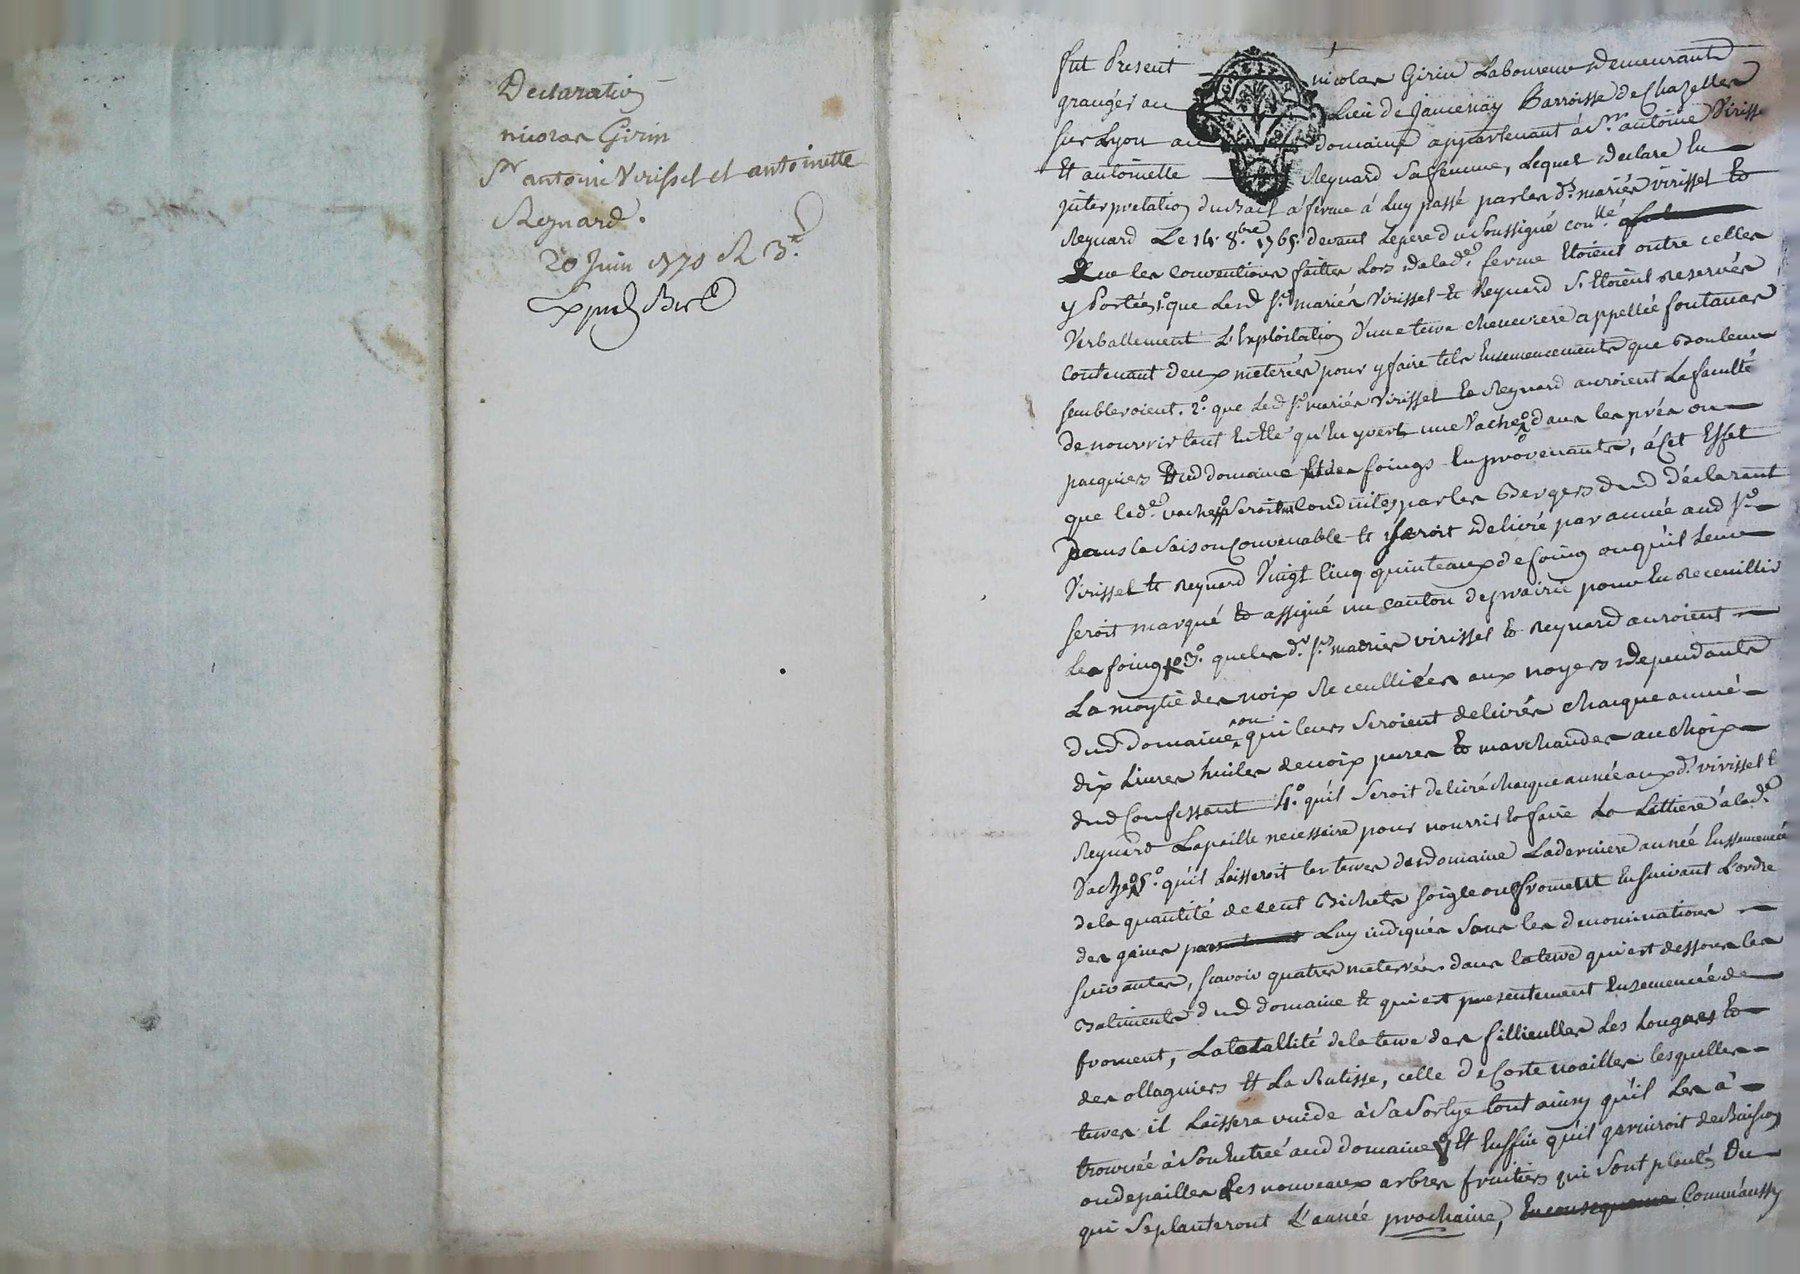 Declaration
nicolas Girin
Sr antoine Virissel et antoinette
Reynard.
20 Juin 1770 R 3.
fut Present nicolas Girin Laboureur demeurant
granger au Lieu de Jancenay Parroisse de Chazelles
sur Lyon au domaine appartenant à Sr antoine Virissel
Et antoinette Reynard Sa femme, Lequel declare En
jnterpretation du Bail à ferme à Luy passé par les d. mariés virissel Et
Reynard Le 14. 8.bre 1765. devant Le pere du Soussigné con.lle
Que les conventions faittes Lors de lad.e ferme Etoient outre celles
y Portées 1.o que Lesd Srs mariés Virissel Et Reynard S'Etoient reservés
Verballement L'Exploitation d'une terre cheneviere appellée fontanas
contenant deux meterées pour y faire tels Ensemencements que Bon leur
sembleroient. 2.o que Lesd Srs mariés Virissel Et Reynard auroient La faculté
de nourrir tant En Eté qu'En yvert une Vache dans les prés ou
paquiers dud domaine Et des foings En provenants, à Cet Effet
que lad.e vache Seroit Conduite par les Bergers dud déclarant
Dans la Saison Convenable Et Seroit delivré par année aud Sr
Virissel Et Reynard Vingt Cinq quinteaux de foing ou qu'il Leur
seroit marqué Et assigné un canton de prairie pour En Receuillir
Les foing 3.o que les d. Srs mariés virissel Et Reynard auroient
La moytié des noix Receuilliées aux noyers dependants
dud Domaine, ou qui leurs Seroient delivrés chaque année
dix Livres huiles de noix pures Et marchandes au choix
dud Confessant 4.o qu'il Seroit delivré chaque année aux d. virissel Et
Reynard La paille necessaire pour nourrir Et faire La Littiere à lad.e
Vache 5.o qu'il Laisseroit les terres dud domaine La derniere année Enssemencé
de la quantité de cent Bichets soigle ou froment En suivant L'ordre
des gaines Luy indiqués Sous les denominations
suivantes, scavoir quatres meterées dans la terre qui est dessous les
Batiments dud domaine Et qui est presentement Ensemencée de
froment, La totallité de la terre des fillieulles Les Longues Et
des ollagniers Et La Ratisse, celle de Coste noailles lesquelles
terres il Laissera vuide à Sa Sortye tout ainsy qu'il Les à
trouvée à Son Entrée aud domaine, Et Enffin qu'il garniroit de Buisson
ou de pailles Les nouveaux arbres fruitiers qui Sont plantés Ou
qui Se planteront L'année prochaine, Comm'aussy